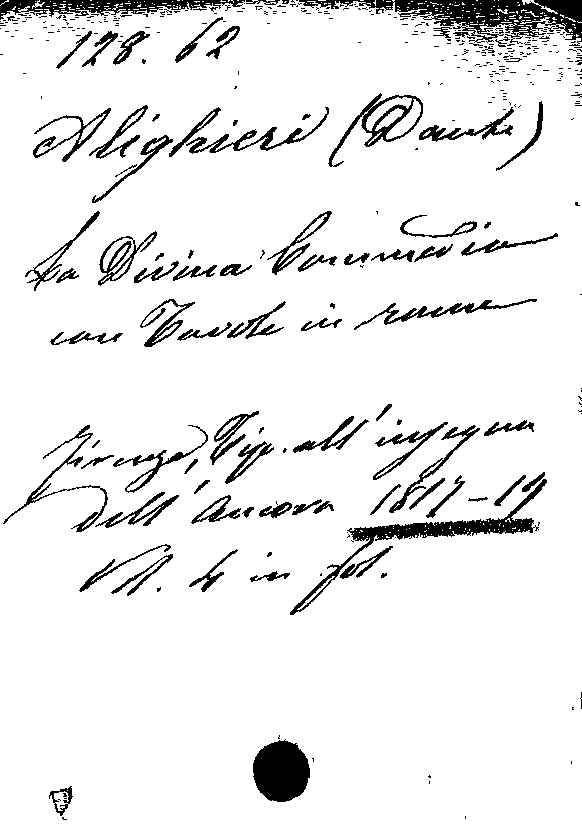 128. 62
Alighieri (Dante)
La Divina Commedia
con Tavole in rame
Firenze, Tip. all' insegna
dell' Ancora 1817-19
Vol. 4 in fol.